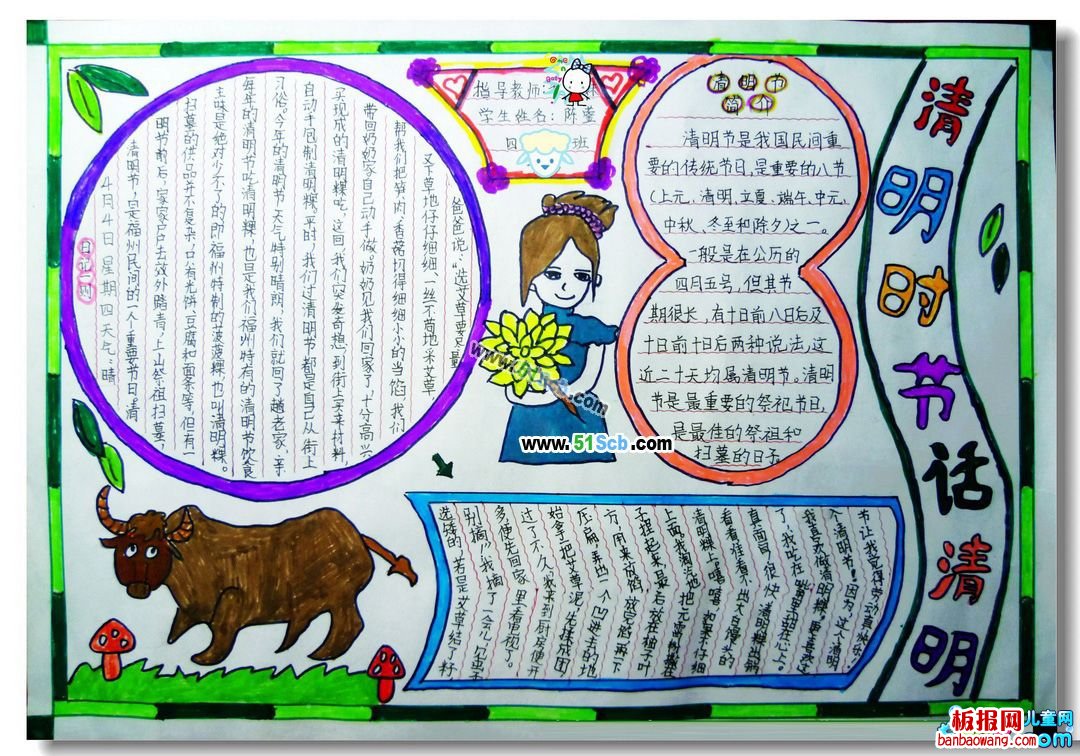 清明时节话清明
指导教师:
学生姓名:陈雯
四 班
清明节
简介
清明节是我国民间重
要的传统节日,是重要的八节
(上元、清明、立夏、端午、中元、
中秋、冬至和除夕)之一。
一般是在公历的
四月五号,但其节
期很长,有十日前八日后及
十日前十日后两种说法,这
近二十天均属清明节。清明
节是最重要的祭祀节日,
是最佳的祭祖和
扫墓的日子
日记一则
4月4日 星期四 天气:晴
清明节,是福州民间的一个重要节日。清
明节前后,家家户户去效外踏青,上山祭祖扫墓,
扫墓的供品并不复杂,只有光饼、豆腐和面条等,但有一
主味是绝对少不了的,即福州特制的菠菠粿,也叫清明粿。
每年的清明节吃清明粿,也是我们福州特有的清明节饮食
习俗。今年的清明节天气特别晴朗,我们就回了趟老家,亲
自动手包制清明粿。平时,我们过清明节,都是自己从街上
买现成的清明粿吃,这回,我们突发奇想,到街上买来材料,
带回奶奶家自己动手做。奶奶见我们回家了,十分高兴
帮我们把笋肉、香菇切得细细小小的当馅,我们
又下草地仔仔细细、一丝不苟地采艾草
爸爸说:“选艾草要尽量
选矮的,若是艾草结了籽
别摘!”我摘了一会儿,见虫子
多便先回家里看电视了。
过了不久,我来到厨房,便开
始拿了把艾草泥,先揉成团
压扁,弄出一个凹进去的地
方,用来放馅,放完馅,再一下
子捏起来,最后放在柚子叶
清明粿上。嘻嘻,如果不仔细
看看,准看不出大白馒头的
真面目,很快,清明粿出锅
了,我吃在嘴里甜在心上,
我喜欢做清明粿,更喜欢这
个清明节!因为,这个清明
节让我觉得劳动真快乐!
www.51Scb.com
板报网
banbaowang.com
儿童网